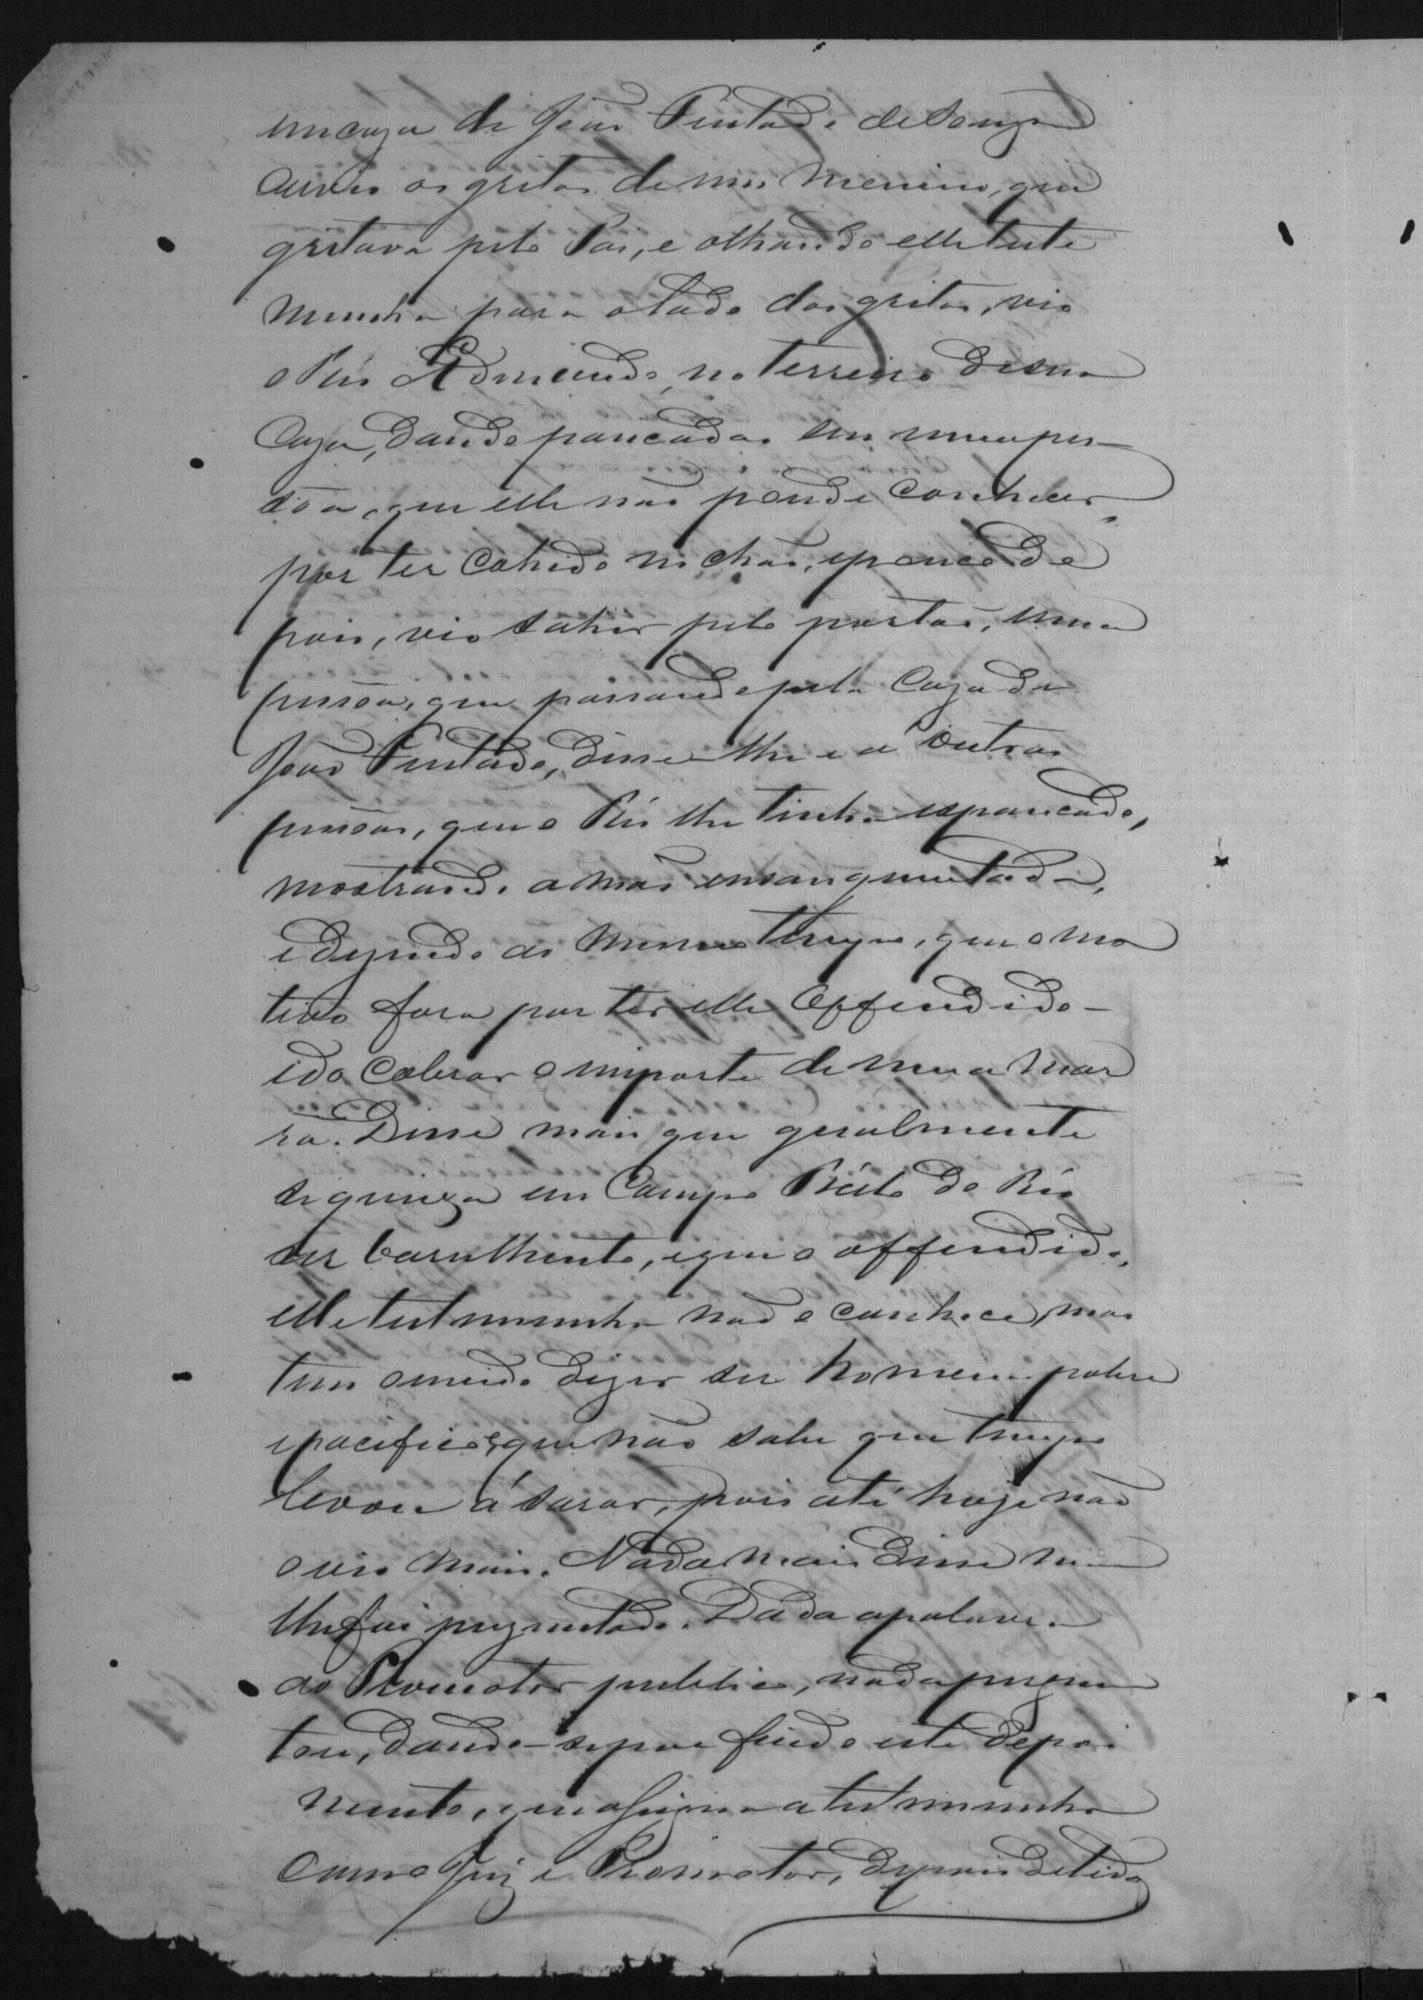 em caza de João Pintado de Souza
ouvio os gritos de um menino, que
gritava pelo Pai, e olhando elle teste
munha para o lado dos gritos, vio
o Réo Edmundo, no terreiro de sua
Caza, dando pancadas em uma pes-
sôa, que elle não poude conhecer,
por ter cahido no chão, e pouco de
pois, vio sahir pelo portão, uma
pessôa, que passando pela Caza de
João Pintado, disse-lhe e a outras
pessôas, que o Réo lhe tinha espancado,
mostrando a mão ensanguentada,
e dizendo ao mesmo tempo, que o mo
tivo fora por ter elle Offendido
ido cobrar o importe de uma mar
rã. Disse mais que geralmente
se queixa em Campo Bello do Réo
ser barulhento, e que o offendido,
elle testemunha não o conhece, mas
tem ouvido dizer ser homem pobre
e pacifico, e que não sabe que tempo
levou á sarar, pois até hoje não
o vio mais. Nada mais disse nem
lhe foi perguntado. Dada a palavra
ao Promotor publico, nada pergun
tou, dando-se por findo este depoi
mento, que assigna a testemunha
com o Juiz e Promotor, depois de lido